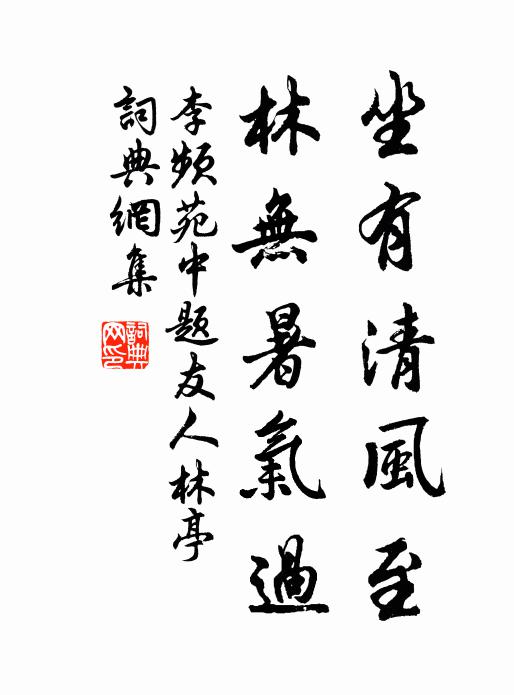 坐有清風至
林無暑氣過
李頻苑中題友人林亭
詞典網集
詞典網印